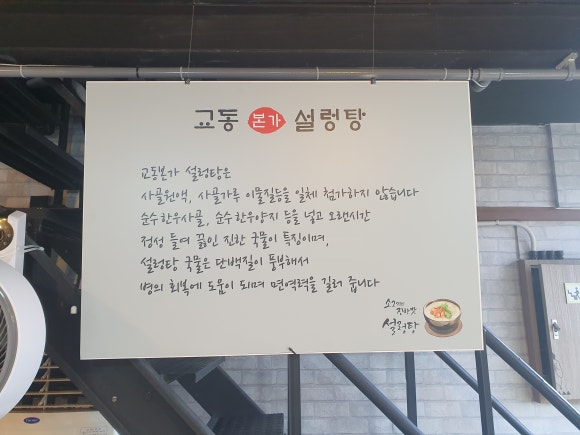 교동 본가 설렁탕
교동본가 설렁탕은
사골원액, 사골가루 이물질등을 일체 첨가하지 않습니다
순수한우사골, 순수한우양지 등을 넣고 오랜시간
정성 들여 끓인 진한 국물이 특징이며,
설렁탕 국물은 단백질이 풍부해서
병의 회복에 도움이 되며 면역력을 길러 줍니다
진하잔
설렁탕